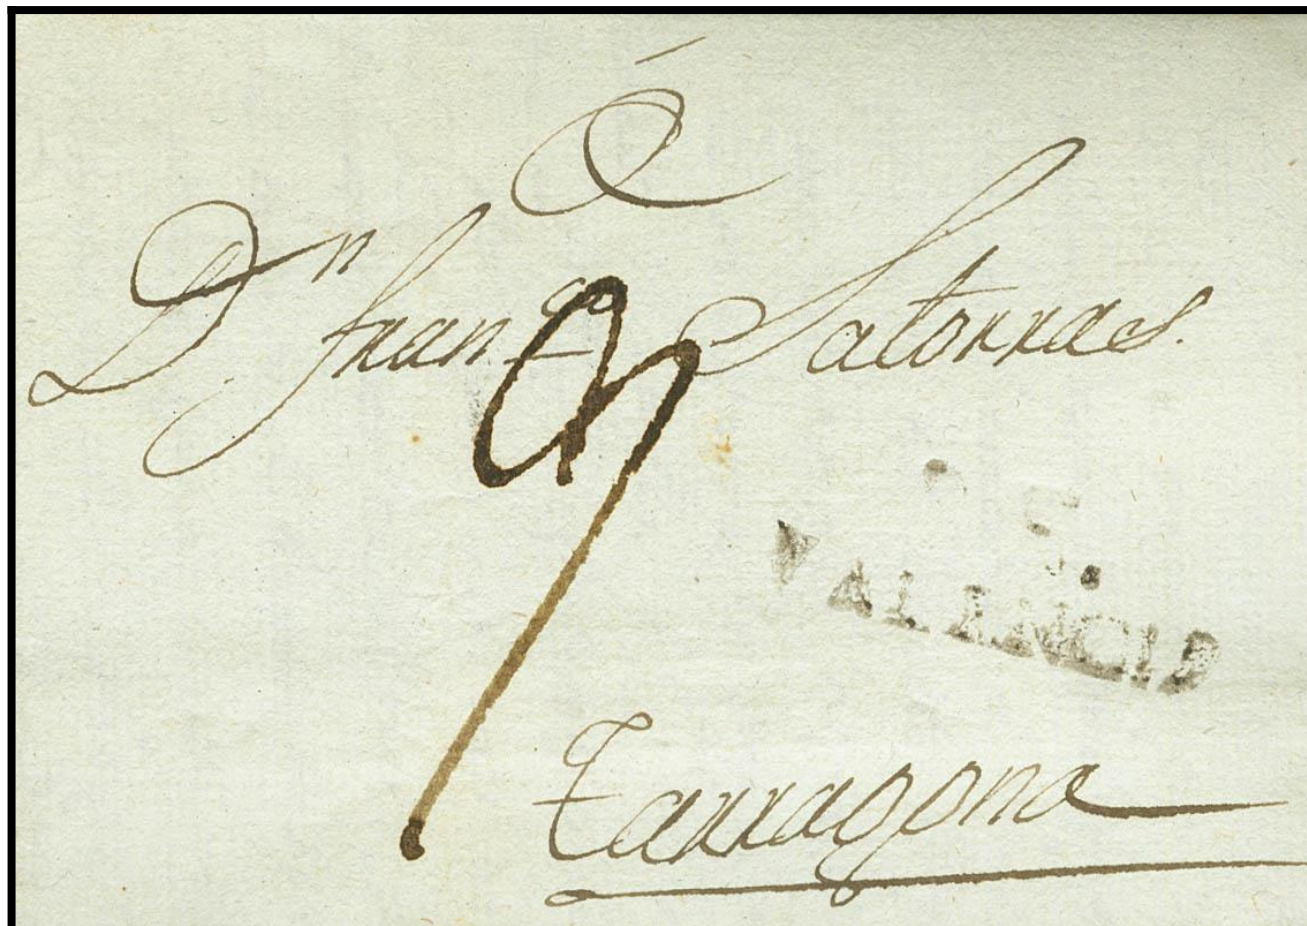 á
Dn. Franco Satorras.
VALENCIA
Tarragona